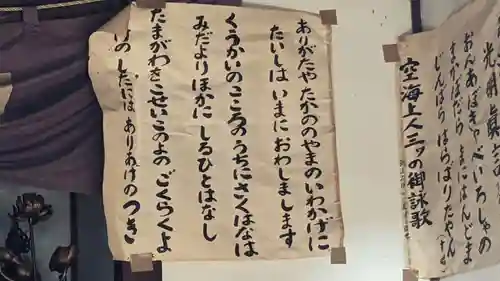 光明真言
おんあぼきゃべいろしゃの
まかぼだら まにはんどま
じんばら はらばりたやん
空海上人三ッの御詠歌
ありがたや たかののやまのいわかげに
たいしは いまにおわしまします
くうかいのこころのうちにさくはなは
みだよりほかに しるひとはなし
たまがわきこせいこのよのごくらくよ
けのしたには ありあけのつき